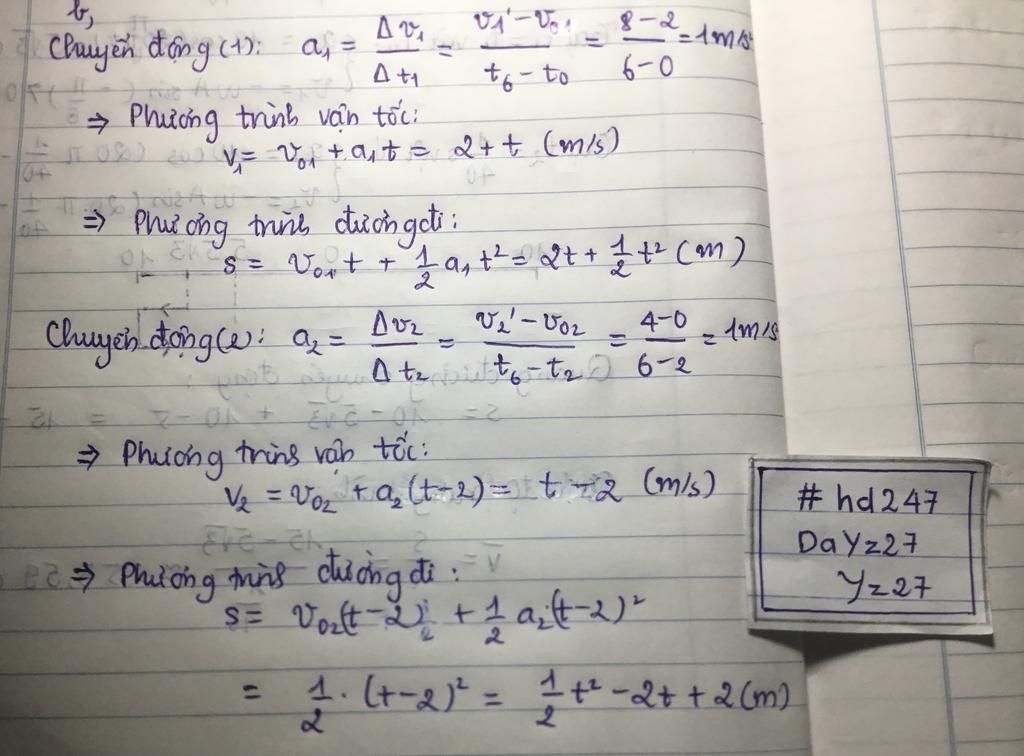 b,
Chuyển động(1): a₁ = Δv₁/Δt₁ = (v₁' - v₀₁)/(t₆ - t₀) = (8-2)/(6-0) = 1m/s²
⇒ Phương trình vận tốc:
v₁ = v₀₁ + a₁t = 2 + t (m/s)
⇒ Phương trình đường đi:
s = v₀₁t + 1/2 a₁t² = 2t + 1/2 t² (m)
Chuyển động(2): a₂ = Δv₂/Δt₂ = (v₂' - v₀₂)/(t₆ - t₂) = (4-0)/(6-2) = 1m/s
⇒ Phương trình vận tốc:
v₂ = v₀₂ + a₂(t-2) = t - 2 (m/s)
⇒ Phương trình đường đi:
s = v₀₂(t-2) + 1/2 a₂(t-2)²
= 1/2 · (t-2)² = 1/2 t² - 2t + 2 (m)
# hd247
DaYz27
Yz27